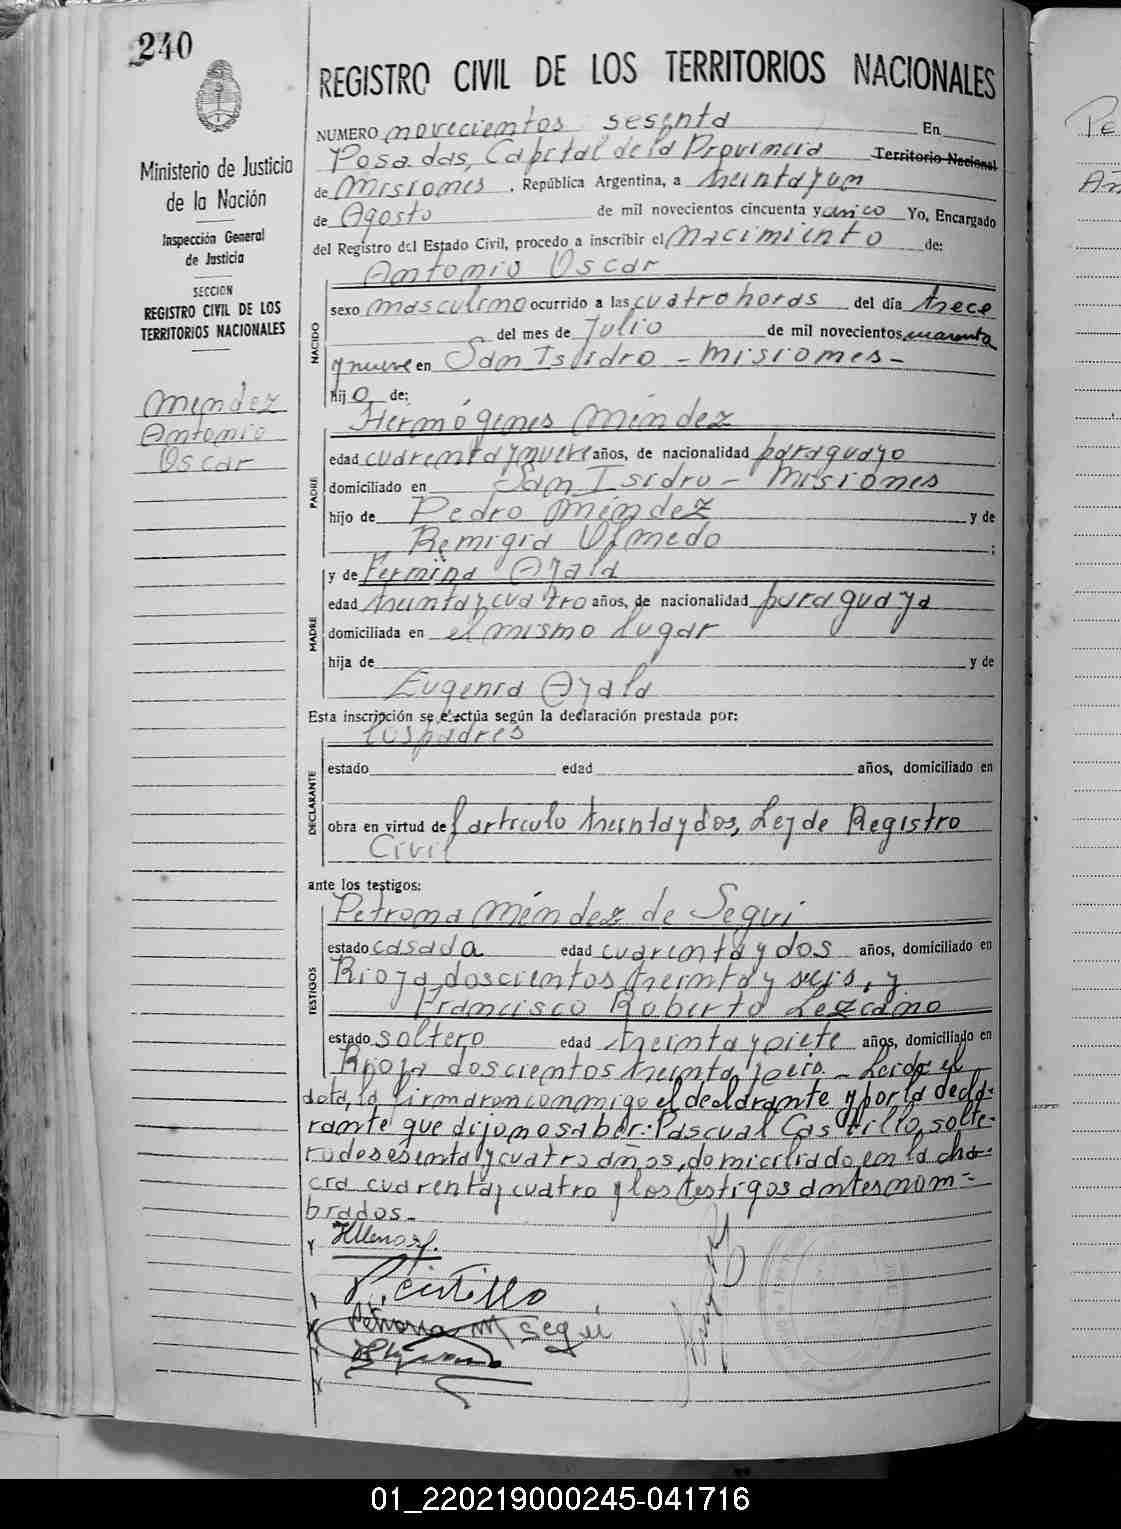 240
Ministerio de Justicia
de la Nación
Inspección General
de Justicia
SECCION
REGISTRO CIVIL DE LOS
TERRITORIOS NACIONALES
Méndez
Antonio
Oscar
REGISTRO CIVIL DE LOS TERRITORIOS NACIONALES
NUMERO novecientos sesenta En
Posadas, Capital de la Provincia Territorio Nacional
de Misiones, República Argentina, a treinta y un
de Agosto de mil novecientos cincuenta y cinco Yo, Encargado
del Registro del Estado Civil, procedo a inscribir el nacimiento de:
Antonio Oscar
NACIDO
sexo masculino ocurrido a las cuatro horas del día trece
del mes de Julio de mil novecientos cuarenta
y nueve en San Isidro - Misiones -
hijo de:
Hermógenes Méndez
PADRE
edad cuarenta y nueve años, de nacionalidad paraguayo
domiciliado en San Isidro - Misiones
hijo de Pedro Méndez y de
Remigia Olmedo ;
y de Fermina Ayala
MADRE
edad treinta y cuatro años, de nacionalidad paraguaya
domiciliada en el mismo lugar
hija de y de
Eugenia Ayala
Esta inscripción se efectúa según la declaración prestada por:
los padres
DECLARANTE
estado edad años, domiciliado en
obra en virtud del artículo treinta y dos, Ley de Registro
Civil
ante los testigos:
Petrona Méndez de Seguí
TESTIGOS
estado casada edad cuarenta y dos años, domiciliado en
Rioja doscientos treinta y seis, y
Francisco Roberto Lezcano
estado soltero edad treinta y siete años, domiciliado en
Rioja doscientos treinta y seis. - Leída el
acta, la firmaron conmigo el declarante y por la decla-
rante que dijo no saber: Pascual Castillo, solte-
ro de sesenta y cuatro años, domiciliado en la cha-
cra cuarenta y cuatro y los testigos antes nom-
brados.-
P. Castillo
Petrona M Seguí
01_220219000245-041716